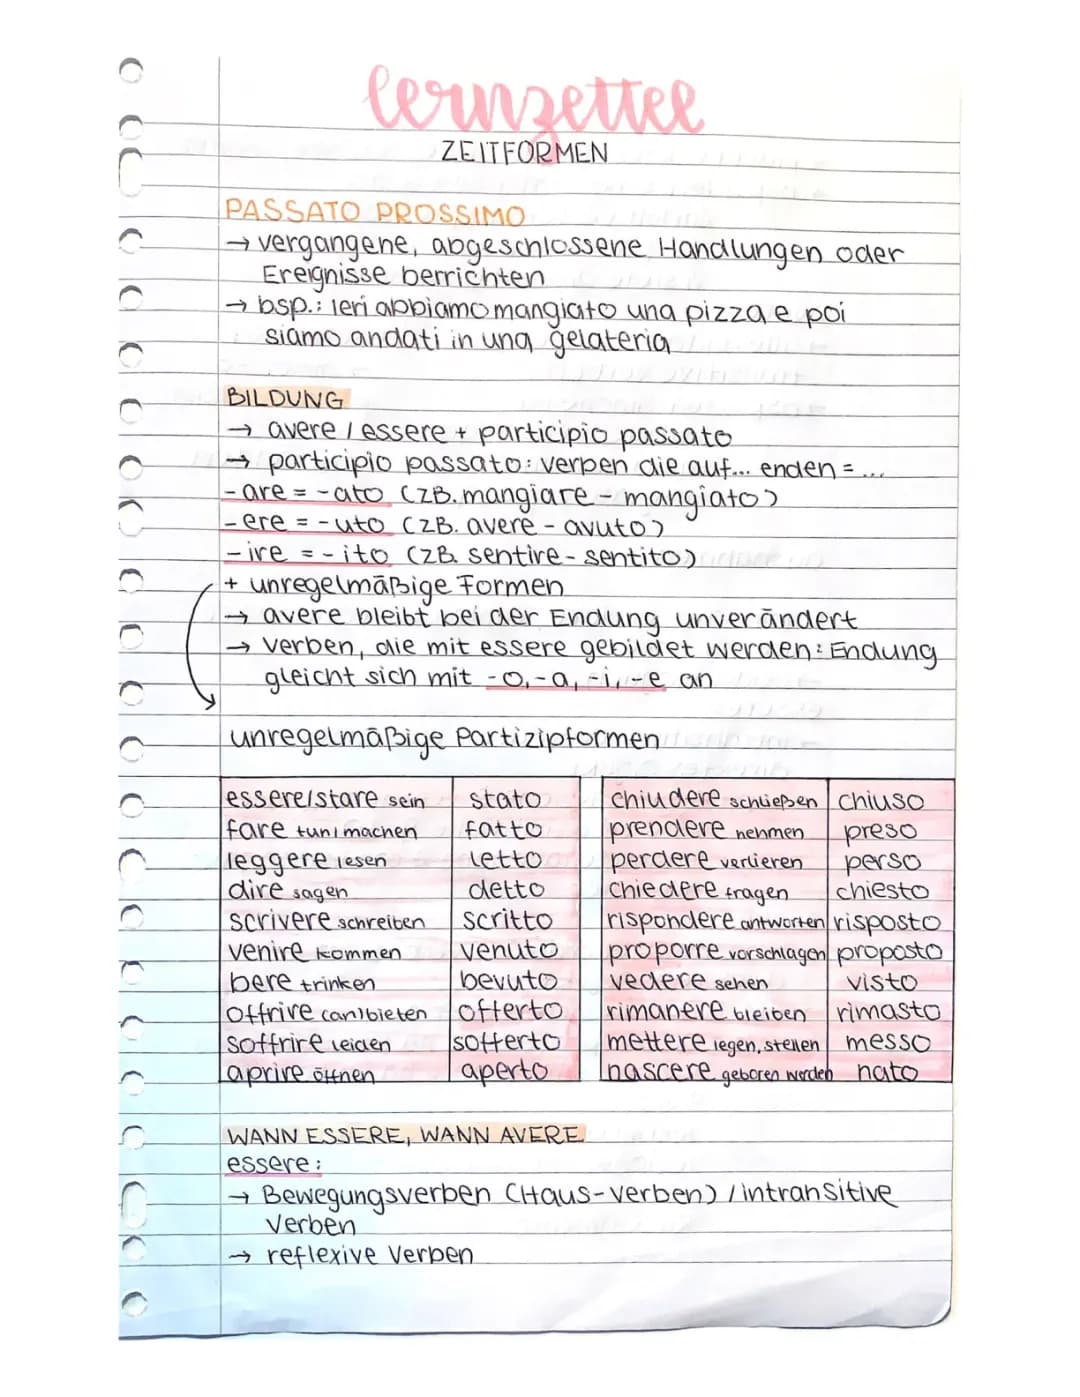 lernzettel
ZEITFORMEN
PASSATO PROSSIMO
→ vergangene, abgeschlossene Handlungen oder
Ereignisse berrichten
→ bsp.: Ieri abbiamo mangiato una pizza e poi
siamo andati in una gelateria
BILDUNG
→ avere / essere + participio passato
→ participio passato: verben die auf... enden = ...
- are = - ato (zB. mangiare - mangiato)
- ere = - uto (zB. avere - avuto)
- ire = - ito (zB. sentire - sentito)
+ unregelmäßige Formen
→ avere bleibt bei der Endung unverändert
→ Verben, die mit essere gebildet werden: Endung
gleicht sich mit -o, -a, -i, -e an
unregelmäßige Partizipformen
essere/stare sein stato chiudere schließen chiuso
fare tun/machen fatto prendere nehmen preso
leggere lesen letto perdere verlieren perso
dire sagen detto chiedere fragen chiesto
scrivere schreiben scritto rispondere antworten risposto
venire kommen venuto proporre vorschlagen proposto
bere trinken bevuto vedere sehen visto
offrire (an)bieten offerto rimanere bleiben rimasto
soffrire leiden sofferto mettere legen, stellen messo
aprire öffnen aperto nascere geboren werden nato
WANN ESSERE, WANN AVERE
essere:
→ Bewegungsverben (Haus-Verben) / intransitive
Verben
→ reflexive Verben